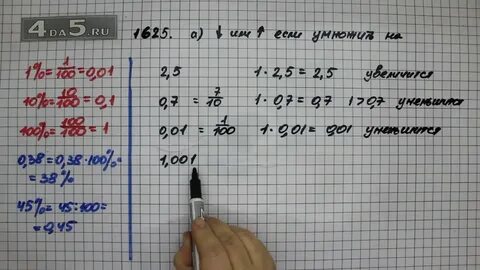 4DA5.RU
1625. а) ↓ или ↑ если умножить на
1% = 1/100 = 0,01
10% = 10/100 = 0,1
100% = 100/100 = 1
0,38 = 0,38·100% =
= 38%
45% = 45:100 =
= 0,45
2,5 1·2,5 = 2,5 увеличится
0,7 = 7/10 1·0,7 = 0,7 1>0,7 уменьшится
0,01 = 1/100 1·0,01 = 0,01 уменьшится
1,001